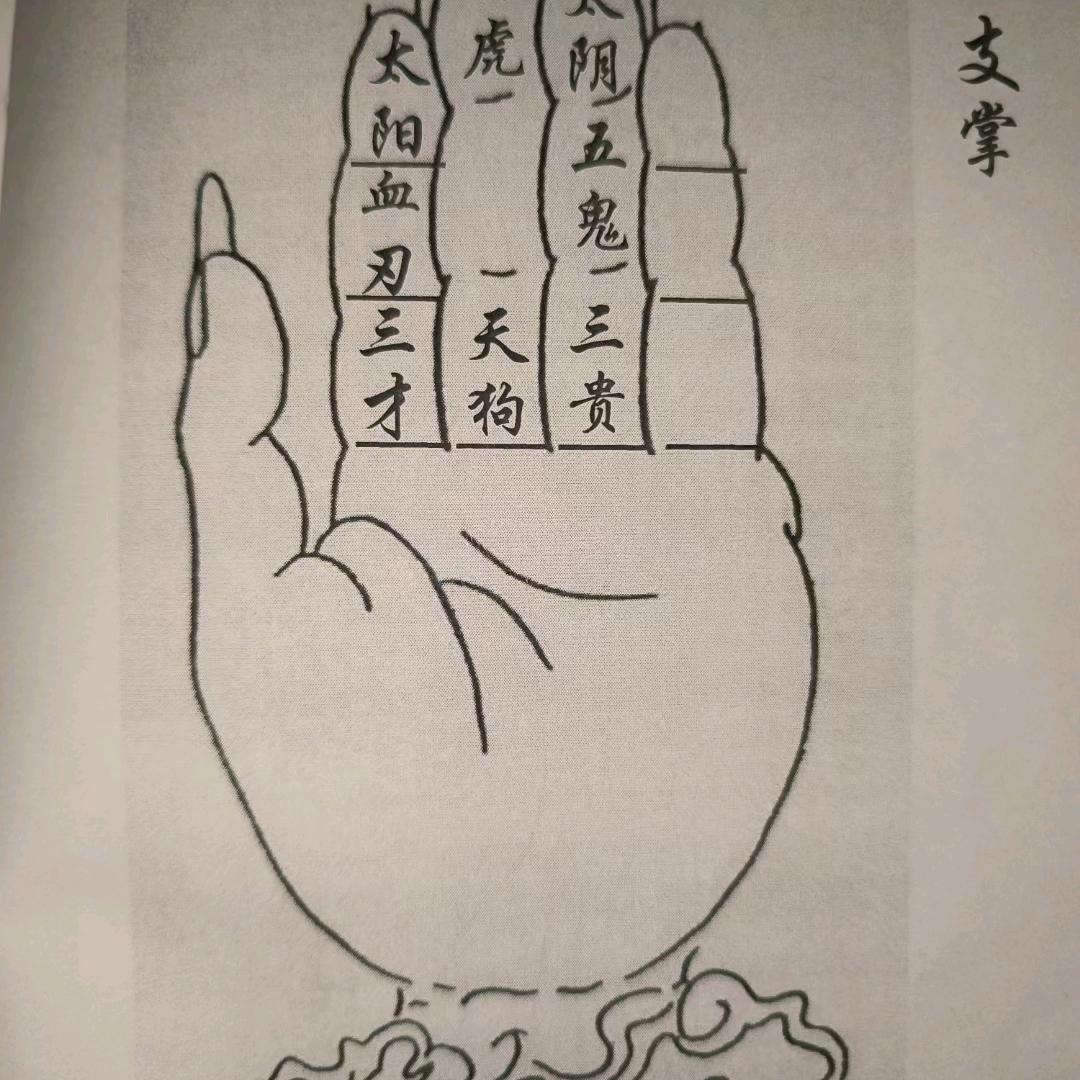 支掌
太阳
血刃
三才
虎
天狗
太阴
五鬼
三贵